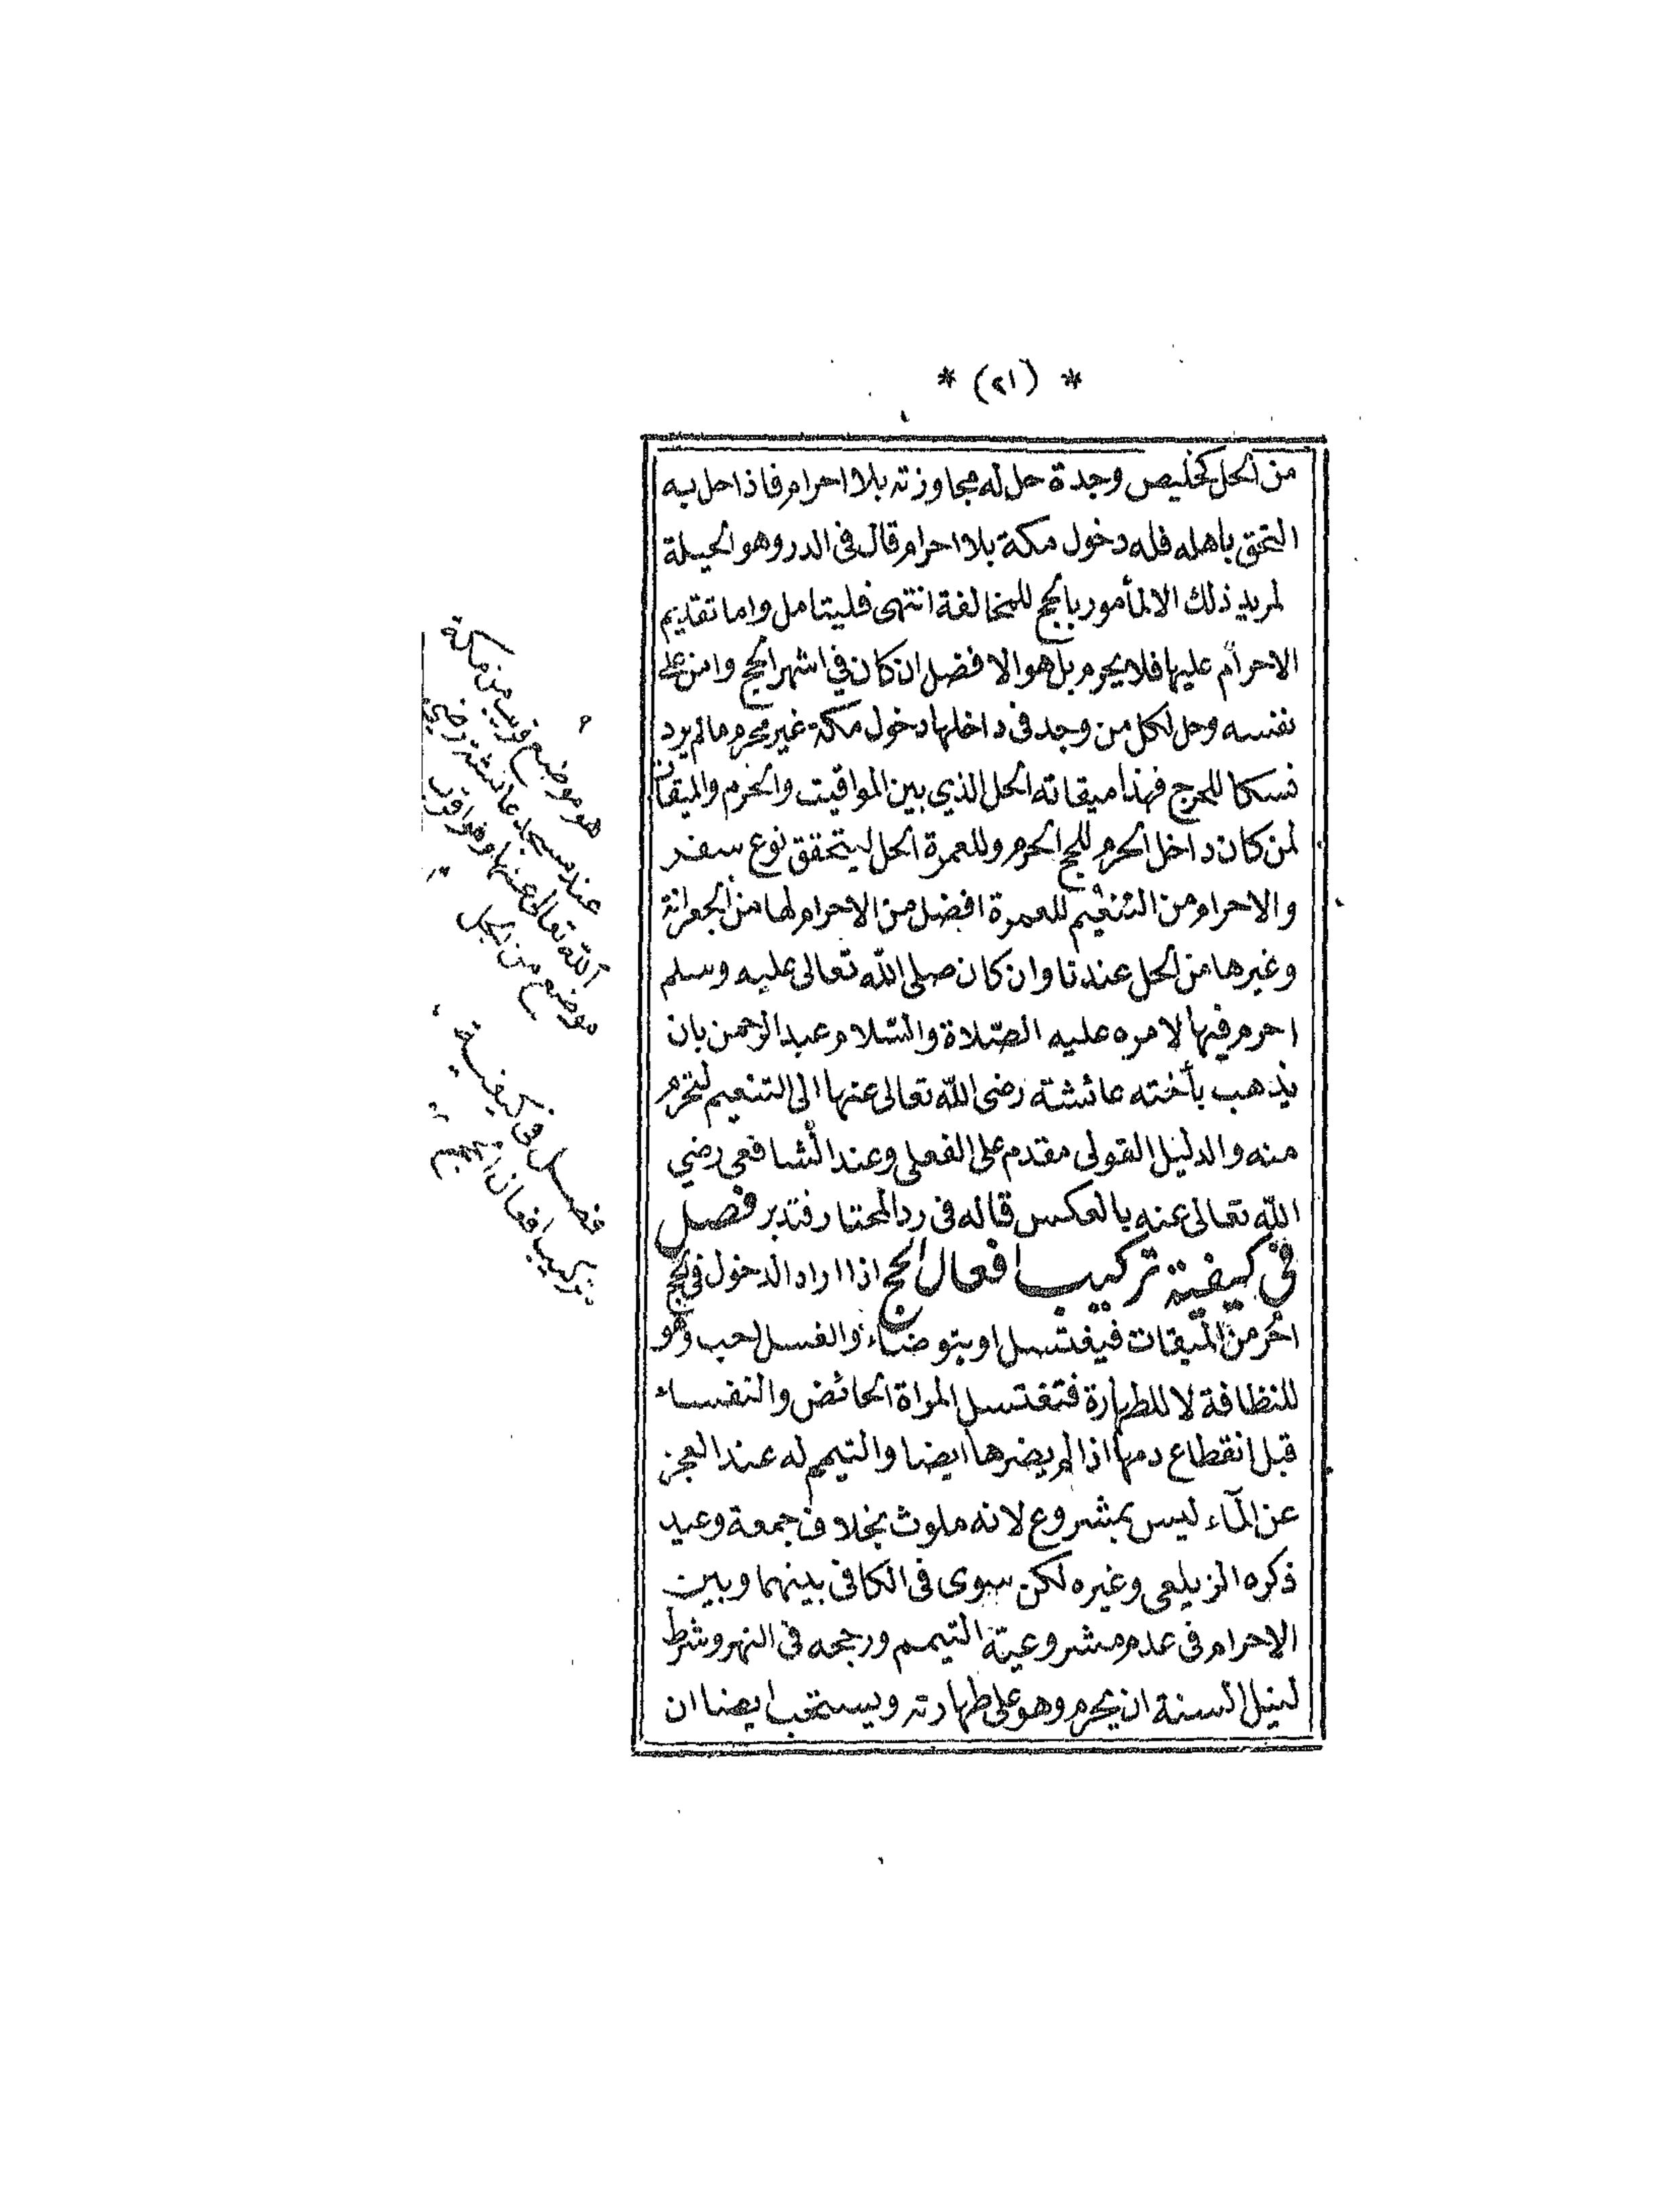 * (٢١) *
من الحل كخليص وجدة حل له مجاوزته بلا احرام فاذا حل به
التحق باهله فله دخول مكة بلا احرام قال فى الدر وهو الحيلة
لمريد ذلك الا لمأمور بالحج للمخالفة انتهى فليتامل واما تقديم
الاحرام عليها فلا يحرم بل هو الافضل ان كان في اشهر الحج وامن على
نفسه وحل لكل من وجد فى داخلها دخول مكة غير محرم ما لم يرد
نسكا للحرج فهذا ميقاته الحل الذي بين المواقيت والحرم والميقات
لمن كان داخل الحرم للحج الحرم وللعمرة الحل ليتحقق نوع سفر
والاحرام من التنعيم للعمرة افضل من الاحرام لها من الجعرانة
وغيرها من الحل عندنا وان كان صلى الله تعالى عليه وسلم
احرم فيها لامره عليه الصّلاة والسّلام عبد الرحمن بان
يذهب بأخته عائشة رضى اللّه تعالى عنها الى التنعيم لتحرم
منه والدليل القولى مقدم على الفعلى وعند الشافعى رضي
اللّه تعالى عنه بالعكس قاله فى رد المحتار فتدبر فصل
فى كيفية تركيب افعال الحج اذا اراد الدخول فى الحج
احرم من الميقات فيغتسل او يتوضاء والغسل احب وهو
للنظافة لا للطهارة فتغتسل المراة الحائض والنفساء
قبل انقطاع دمها اذا لم يضرها ايضا والتيمم له عند العجز
عن المآء ليس بمشروع لانه ملوث بخلاف جمعة وعيد
ذكره الزيلعى وغيره لكن سوى فى الكافى بينهما وبين
الاحرام فى عدم مشروعية التيمم ورجحه فى النهر وشرط
لنيل السنة ان يحرم وهو على طهارته ويستحب ايضا ان
هو موضع قريب من مكة
عند مسجد عائشة رضي
اللّه تعالى عنها وهو اقرب
موضع من الحل
فصل فى كيفية
تركيب افعال الحج